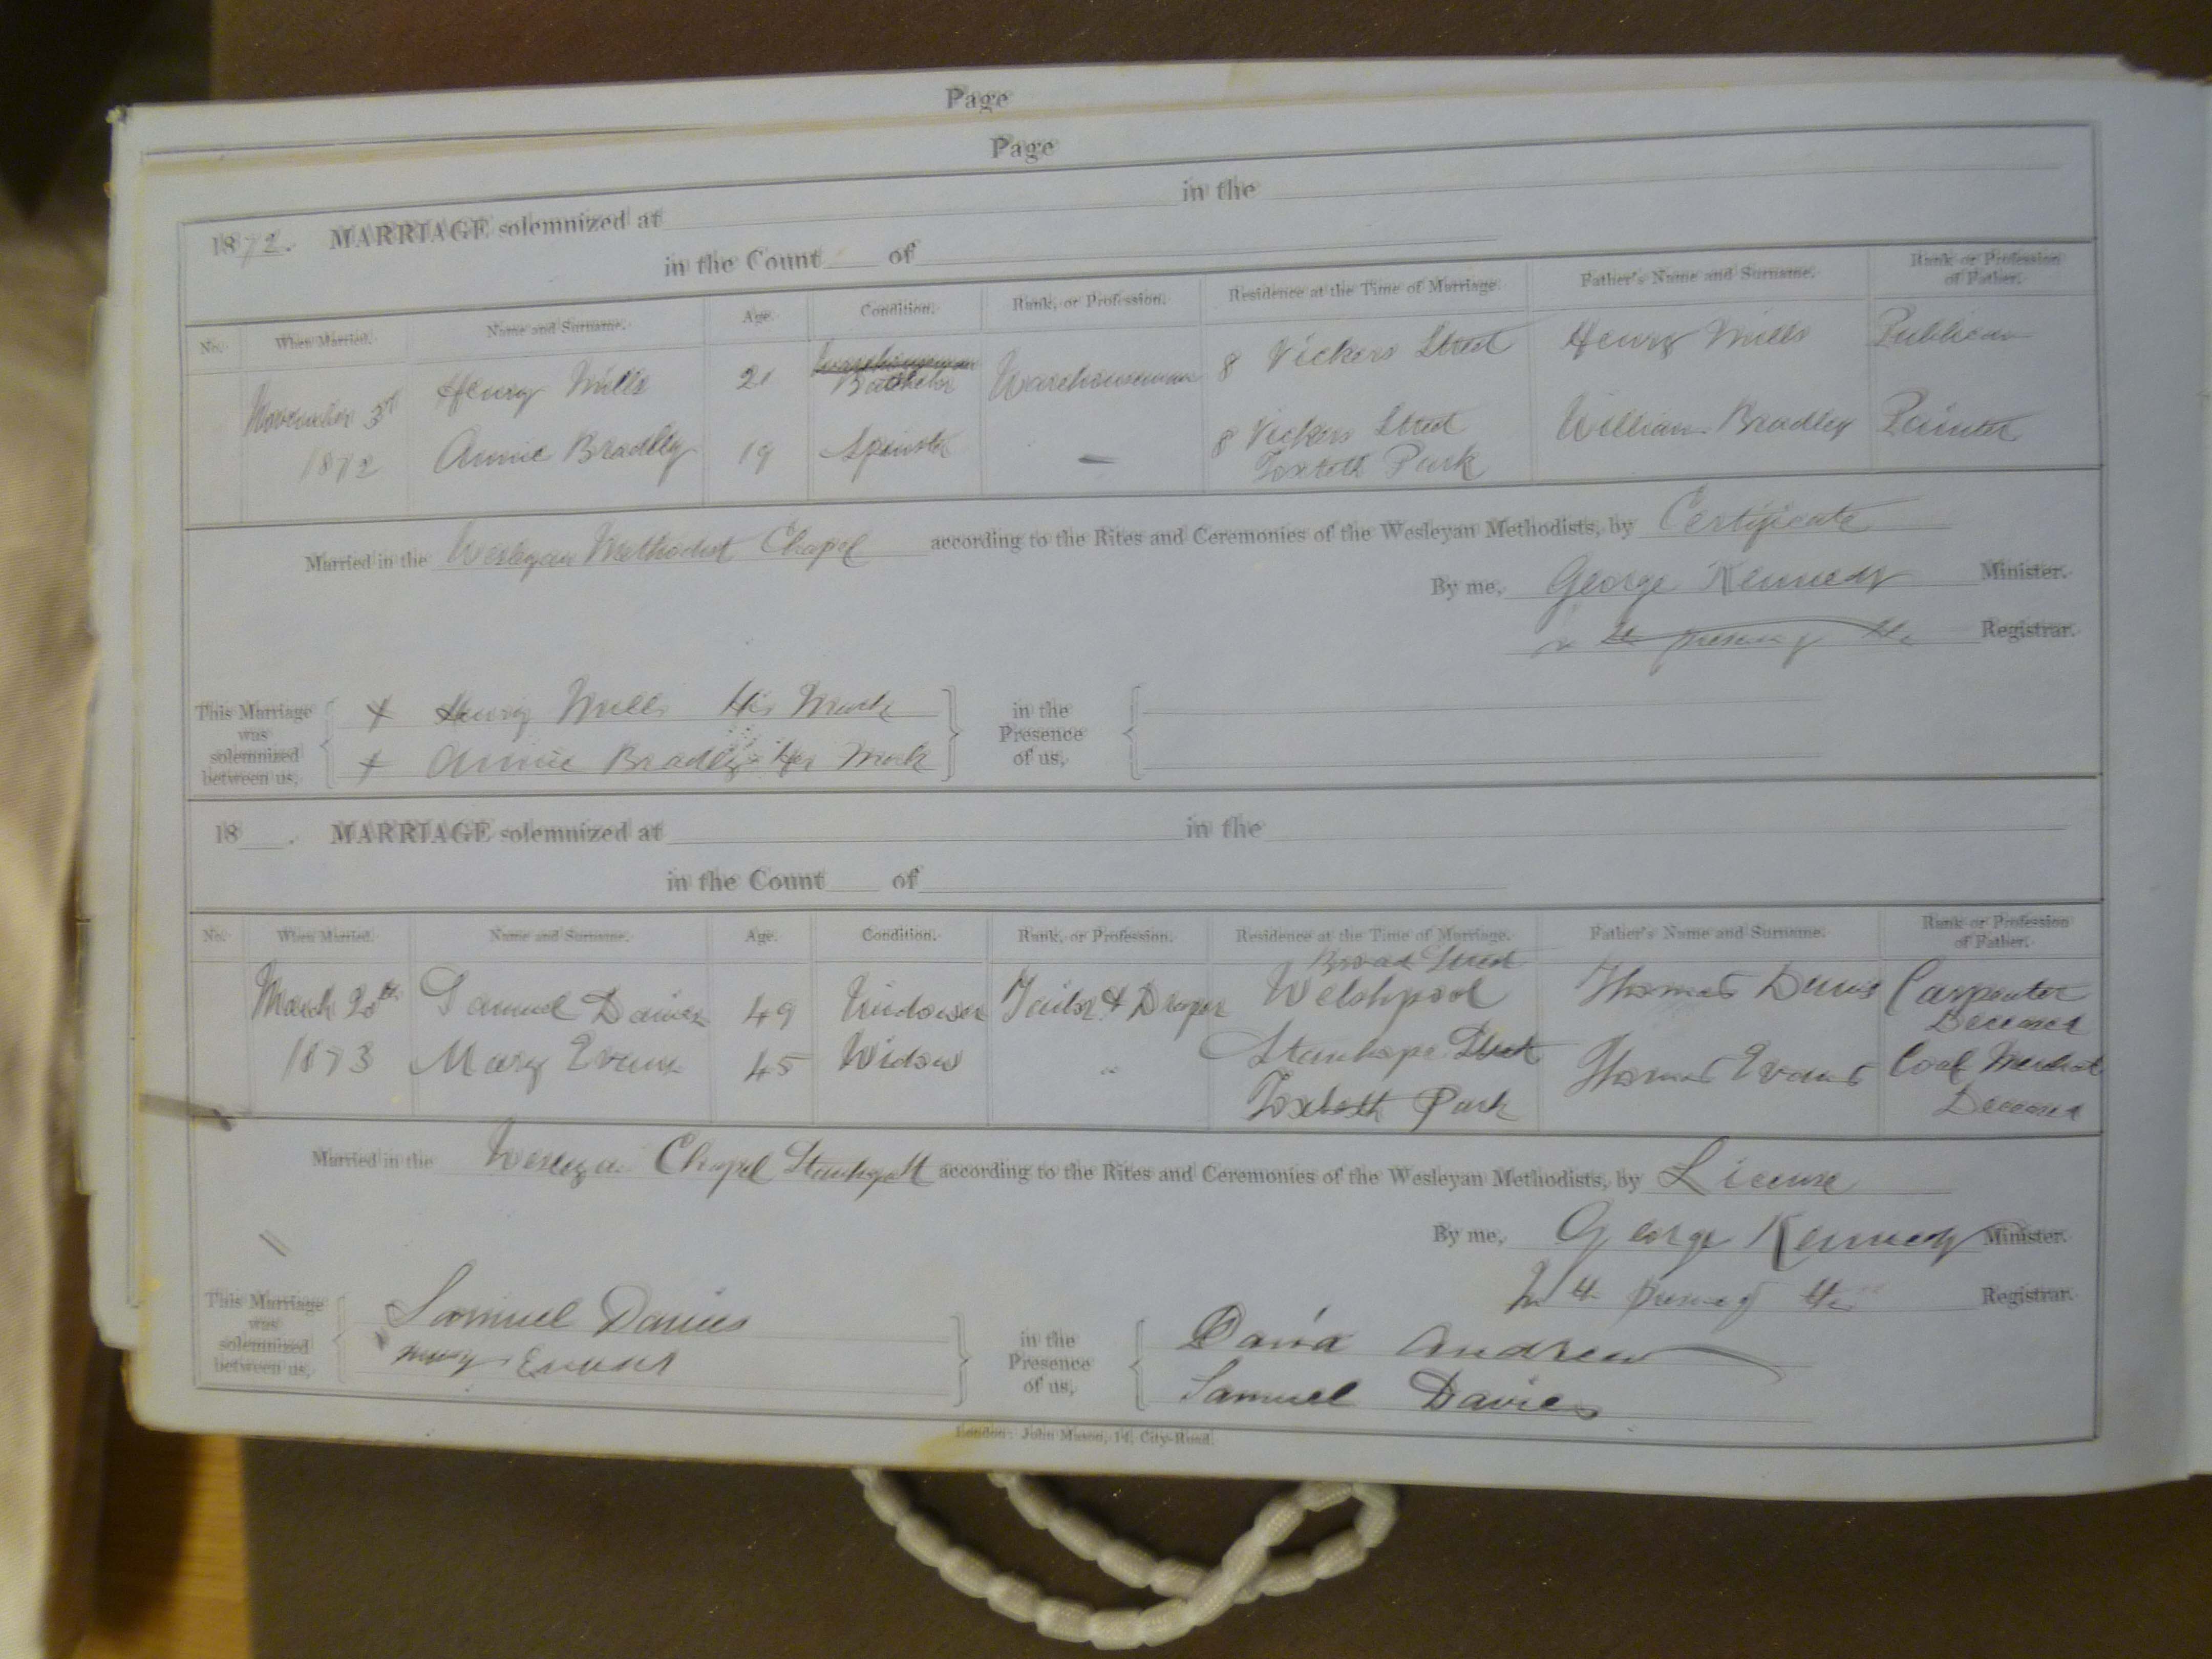 Page
Page
1872. MARRIAGE solemnized at in the
in the Count of
No. When Married. Name and Surname. Age. Condition. Rank, or Profession. Residence at the Time of Marriage. Father's Name and Surname. Rank or Profession of Father.
November 3rd Henry Mills 21 Warehouseman Batchelor Warehouseman 8 Vickers Street Henry Mills Publican
1872 Annie Bradley 19 Spinster — 8 Vickers Street William Bradley Painter
Toxteth Park
Married in the Wesleyan Methodist Chapel according to the Rites and Ceremonies of the Wesleyan Methodists, by Certificate
By me, George Kennedy Minister.
in the presence of the Registrar.
This Marriage was solemnized between us, in the Presence of us,
X Henry Mills His Mark
X Annie Bradley Her Mark
18 . MARRIAGE solemnized at in the
in the Count of
No. When Married. Name and Surname. Age. Condition. Rank, or Profession. Residence at the Time of Marriage. Father's Name and Surname. Rank or Profession of Father.
Broad Street
March 20th Samuel Davies 49 Widower Tailor & Draper Welshpool Thomas Davies Carpenter
Deceased
1873 Mary Evans 45 Widow " Stanhope Street Thomas Evans Coal Merchant
Toxteth Park Deceased
Married in the Wesleyan Chapel Stanhope St according to the Rites and Ceremonies of the Wesleyan Methodists, by License
By me, George Kennedy Minister.
In the presence of the Registrar.
This Marriage was solemnized between us, in the Presence of us,
Samuel Davies David Andrew
Mary Evans Samuel Davies
London: John Mason, 14, City-Road.